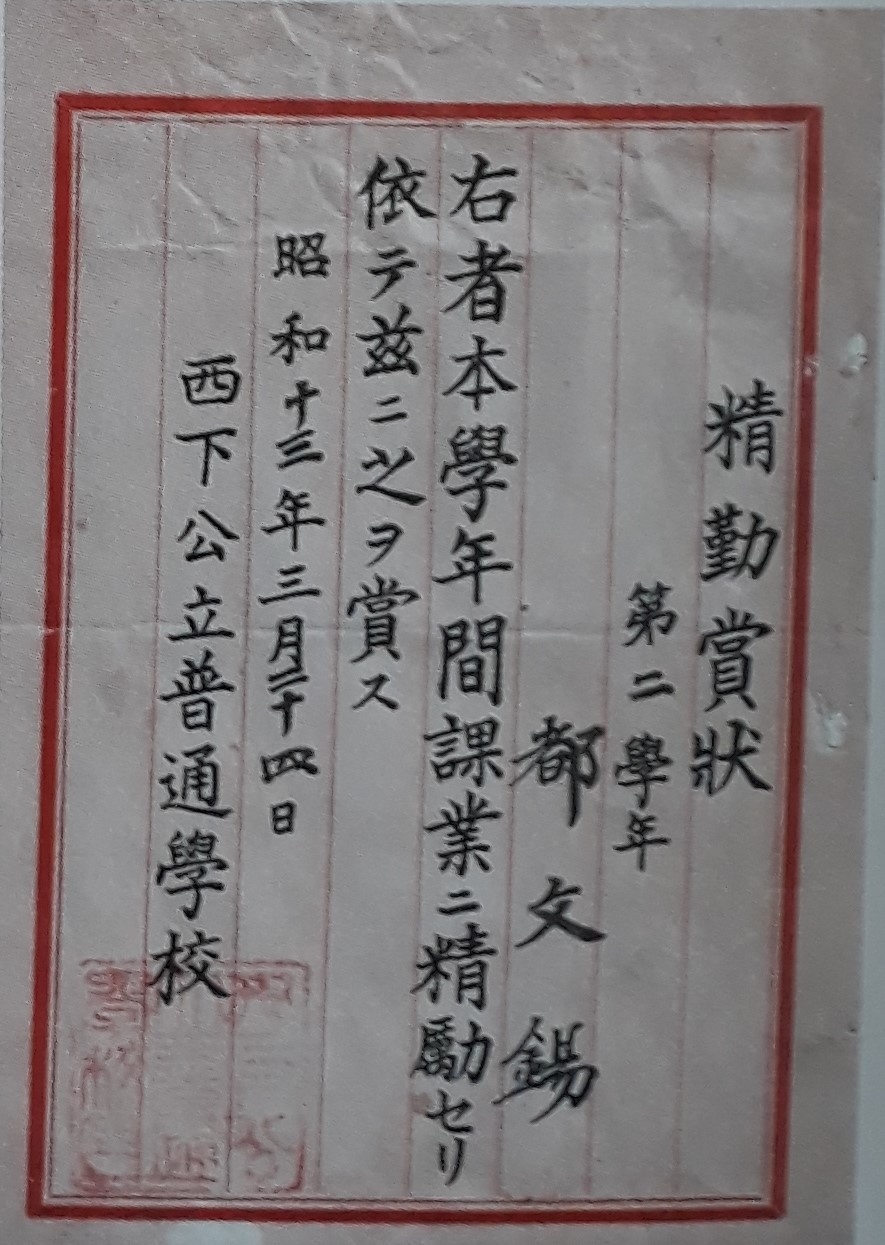 精勤賞狀
第二學年
都文錫
右者本學年間課業ニ精勵セリ
依テ茲ニ之ヲ賞ス
昭和十三年三月二十四日
西下公立普通學校